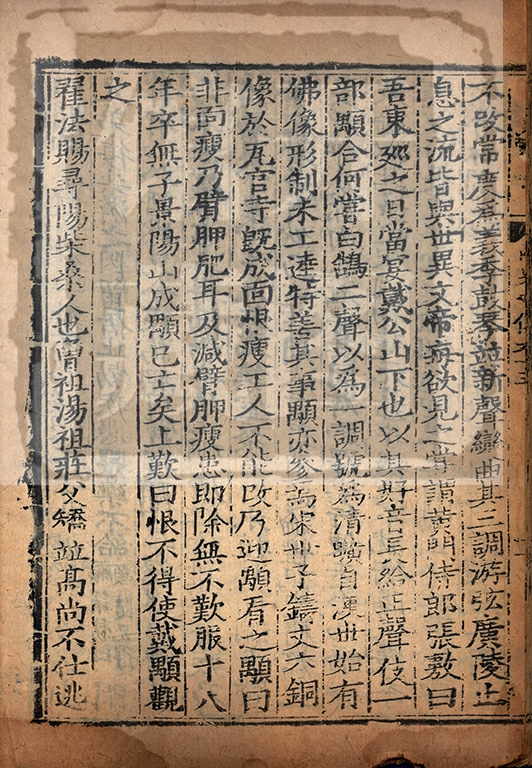 不改常度爲義季鼓琴並新聲變曲其三調游弦廣陵止
息之流皆與世異文帝每欲見之嘗謂黃門侍郎張敷曰
吾東廵之日當宴戴公山下也以其好音長給正聲伎一
部顒合何嘗白鵠二聲以爲一調號爲清曠自漢世始有
佛像形制未工逵特善其事顒亦參焉宋世子鑄丈六銅
像於瓦官寺旣成面恨瘦工人不能改乃迎顒看之顒曰
非面瘦乃臂胛肥耳及減臂胛瘦患即除無不歎服十八
年卒無子景陽山成顒已亡矣上歎曰恨不得使戴顒觀
之
翟法賜尋陽柴桑人也曾祖湯祖莊父矯並高尚不仕逃